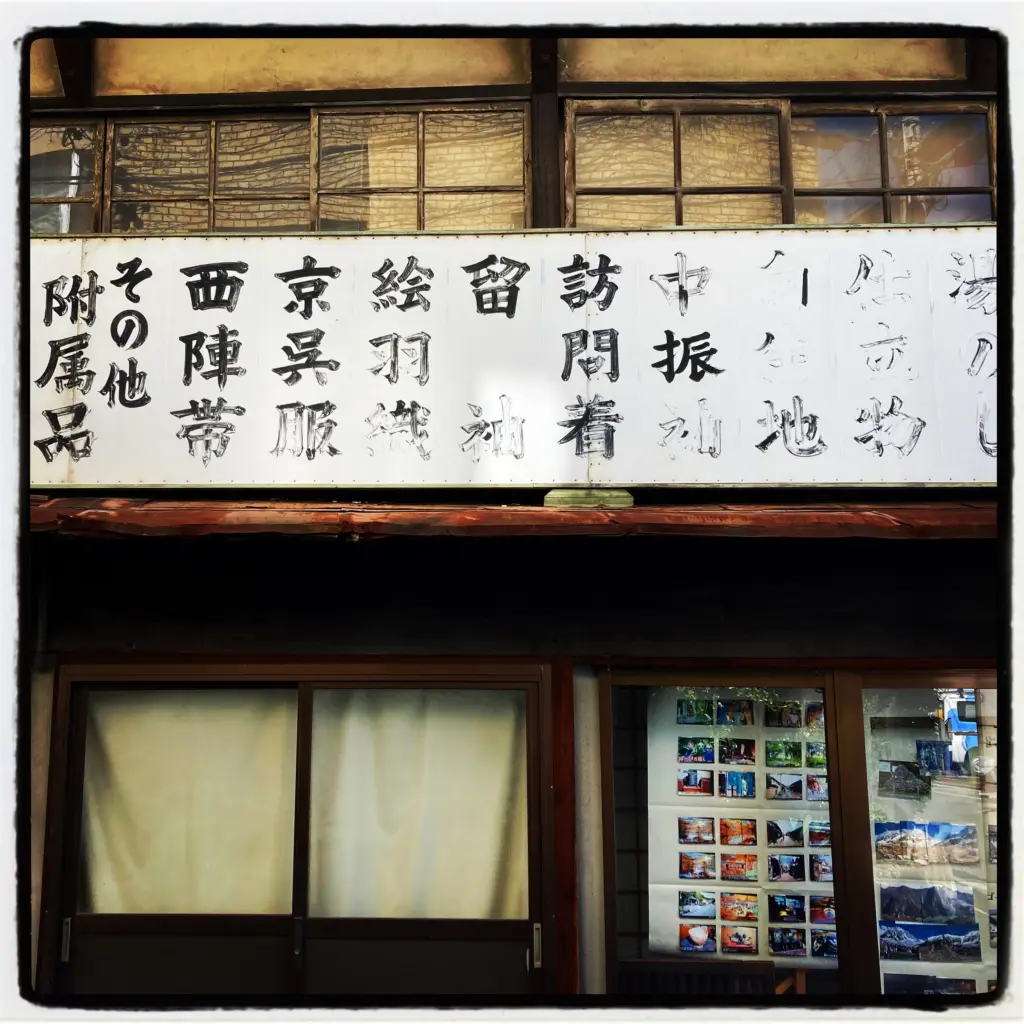 湯のし
仕立物
生地
中振袖
訪問着
留袖
絵羽織
京呉服
西陣帯
その他
附属品